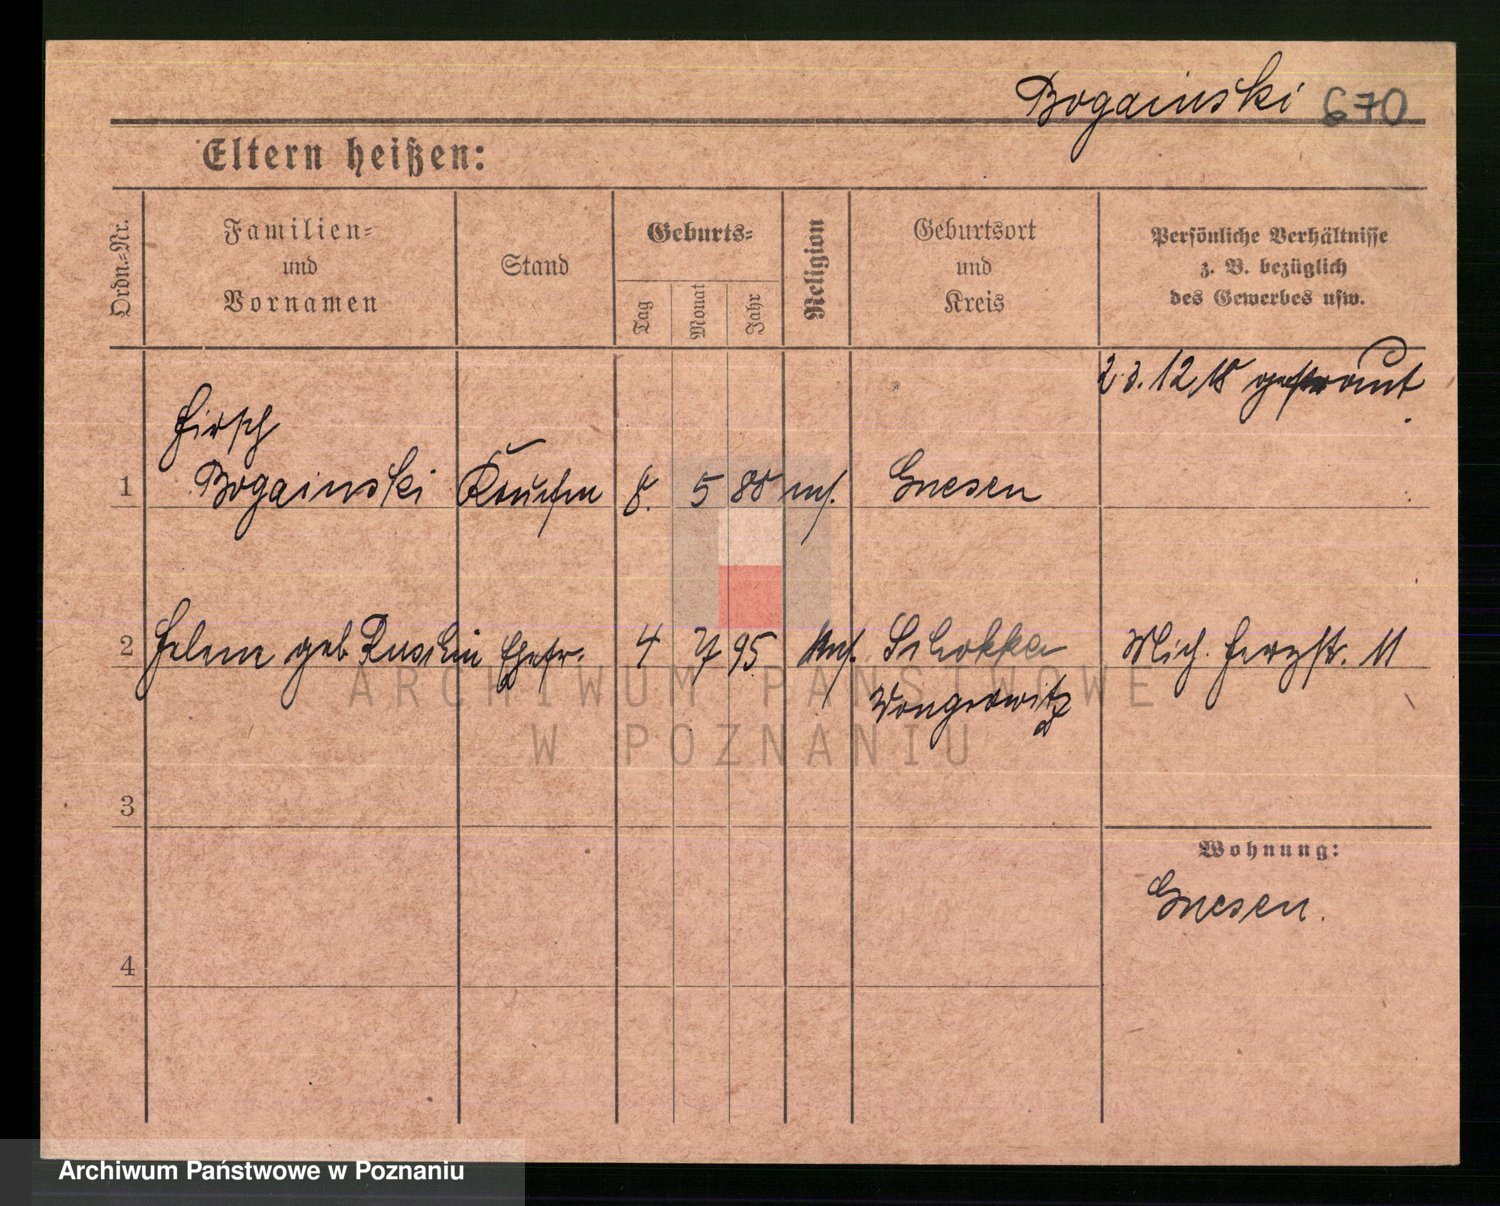 Bogainski 670
Eltern heißen:
Ordn.-Nr.
Familien-
und
Vornamen
Stand
Geburts-
Tag
Monat
Jahr
Religion
Geburtsort
und
Kreis
Persönliche Verhältnisse
z. B. bezüglich
des Gewerbes usw.
23.12.18 getraut
1
Hirsch
Bogainski
Kaufm
8.
5
88
mos.
Gnesen
2
Helene geb.
Ehefr.
4
7
95
mos.
Schokken
Wongrowitz
Mich. Herzstr. 11
ARCHIWUM PAŃSTWOWE
W POZNANIU
3
Wohnung:
Gnesen.
4
Archiwum Państwowe w Poznaniu